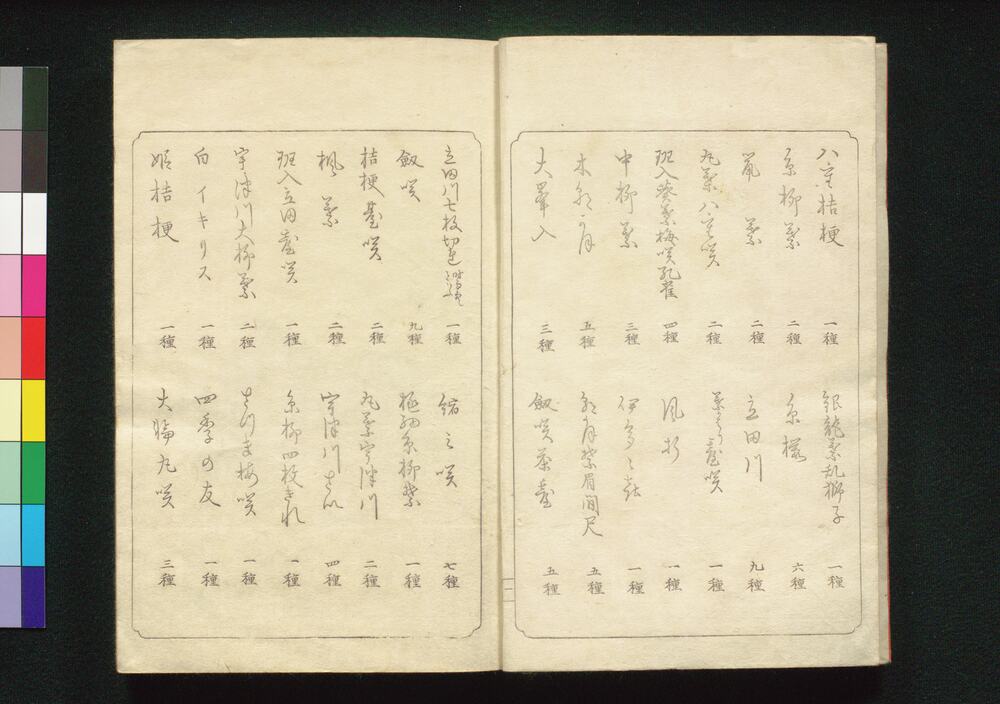 八重桔梗 一種 銀龍葉乱獅子 一種
糸柳葉 二種 糸 六種
葉 二種 立田川 九種
丸葉八重咲 二種 臺咲 一種
斑入葵葉梅咲孔雀 四種 風折 一種
中柳葉 三種 伊 一種
五種 眉間尺 五種
大暈入 三種 釼咲茶臺 五種
立田川七枚切 一種 縮之咲 七種
釼咲 九種 極細糸柳葉 一種
桔梗臺咲 二種 丸葉宇津川 二種
楓葉 二種 宇津川 四種
斑入立田臺咲 一種 糸柳四枚きれ 一種
宇津川大柳葉 二種 さつま梅咲 一種
白イキリス 一種 四季の友 一種
姫桔梗 一種 大輪丸咲 三種